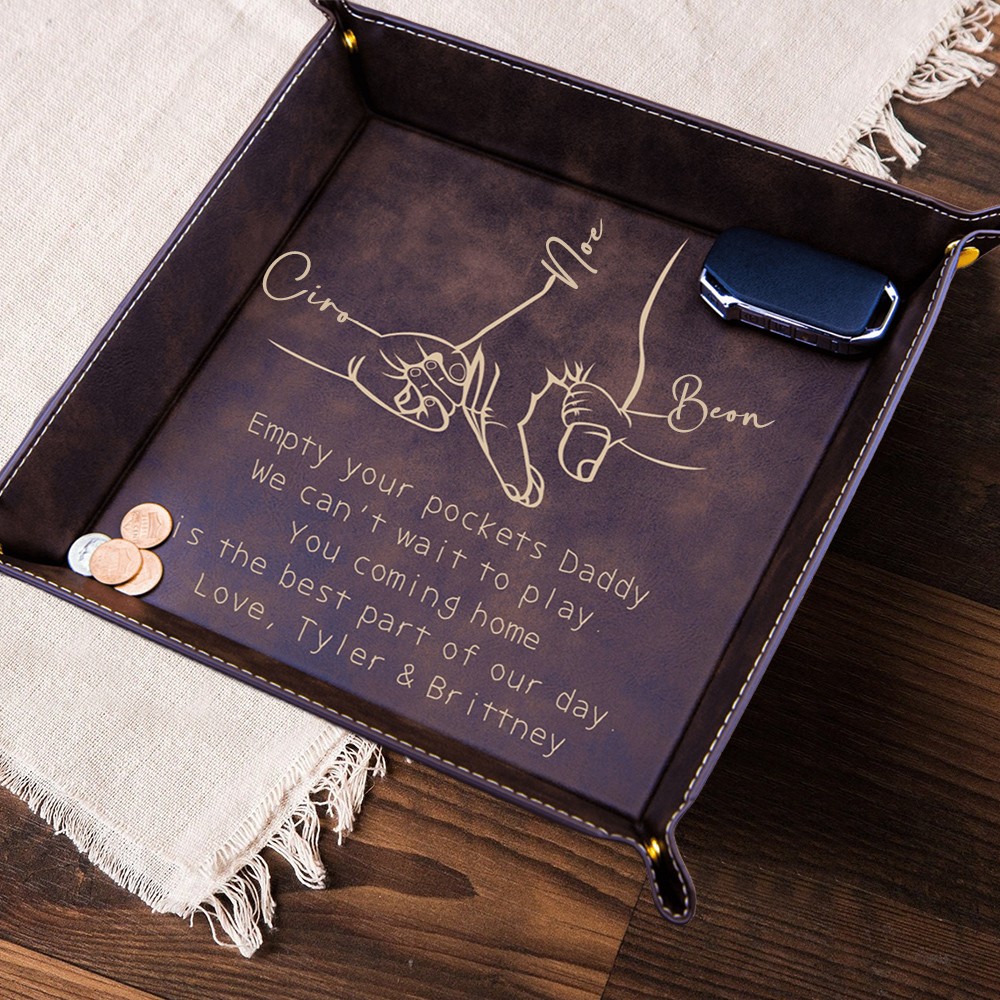 Ciro
Noe
Beon
Empty your pockets Daddy
We can't wait to play.
You coming home
is the best part of our day.
Love, Tyler & Brittney